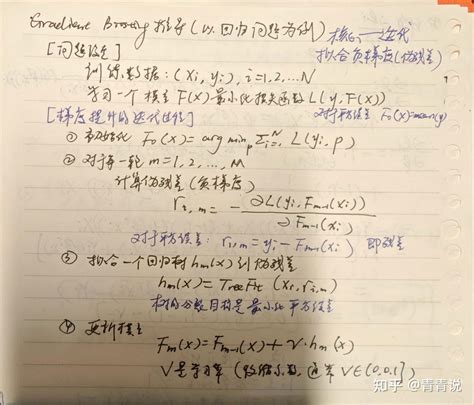 Gradient Boosting 推导 (以回归问题为例) 核心: 迭代
[问题设定] 拟合负梯度(伪残差)
训练数据: (xi, yi), i=1,2,...N
学习一个模型 F(x) 最小化损失函数 L(y, F(x))
[梯度提升的迭代过程] 对于平方误差 F₀(x)=mean(y)
① 初始化 F₀(x) = arg min_ρ Σ_{i=1}^N L(yi, ρ)
② 对于每一轮 m=1,2,..., M
计算伪残差(负梯度)
r_{i,m} = - ∂L(yi, F_{m-1}(xi)) / ∂F_{m-1}(xi)
对于平方误差: r_{i,m} = yi - F_{m-1}(xi) 即残差
③ 拟合一个回归树 hm(x) 到伪残差
hm(x) = TreeFit (xi, r_{i,m})
树的分裂目标是最小化平方误差
④ 更新模型
Fm(x) = F_{m-1}(x) + ν·hm(x)
ν是学习率 (收缩系数, 通常 ν∈(0,0.1])
知乎 @青青说